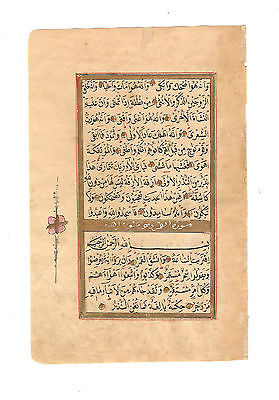 وانه هو اضحك وابكى وانه هو امات واحيا وانه خلق
الزوجين الذكر والانثى من نطفة اذا تمنى وان عليه
النشاة الاخرى وانه هو اغنى واقنى وانه هو رب
الشعرى وانه اهلك عادا الاولى وثمود فما ابقى
وقوم نوح من قبل انهم كانوا هم اظلم واطغى والمؤتفكة
اهوى فغشاها ما غشى فباى الاء ربك تتمارى هذا
نذير من النذر الاولى ازفت الازفة ليس لها من دون الله
كاشفة افمن هذا الحديث تعجبون وتضحكون ولا
تبكون وانتم سامدون فاسجدوا لله واعبدوا
سورة القمر
بسم الله الرحمن الرحيم
اقتربت الساعة وانشق القمر وان يروا اية يعرضوا
ويقولوا سحر مستمر وكذبوا واتبعوا اهواءهم
وكل امر مستقر ولقد جاءهم من الانباء ما فيه
مزدجر حكمة بالغة فما تغن النذر